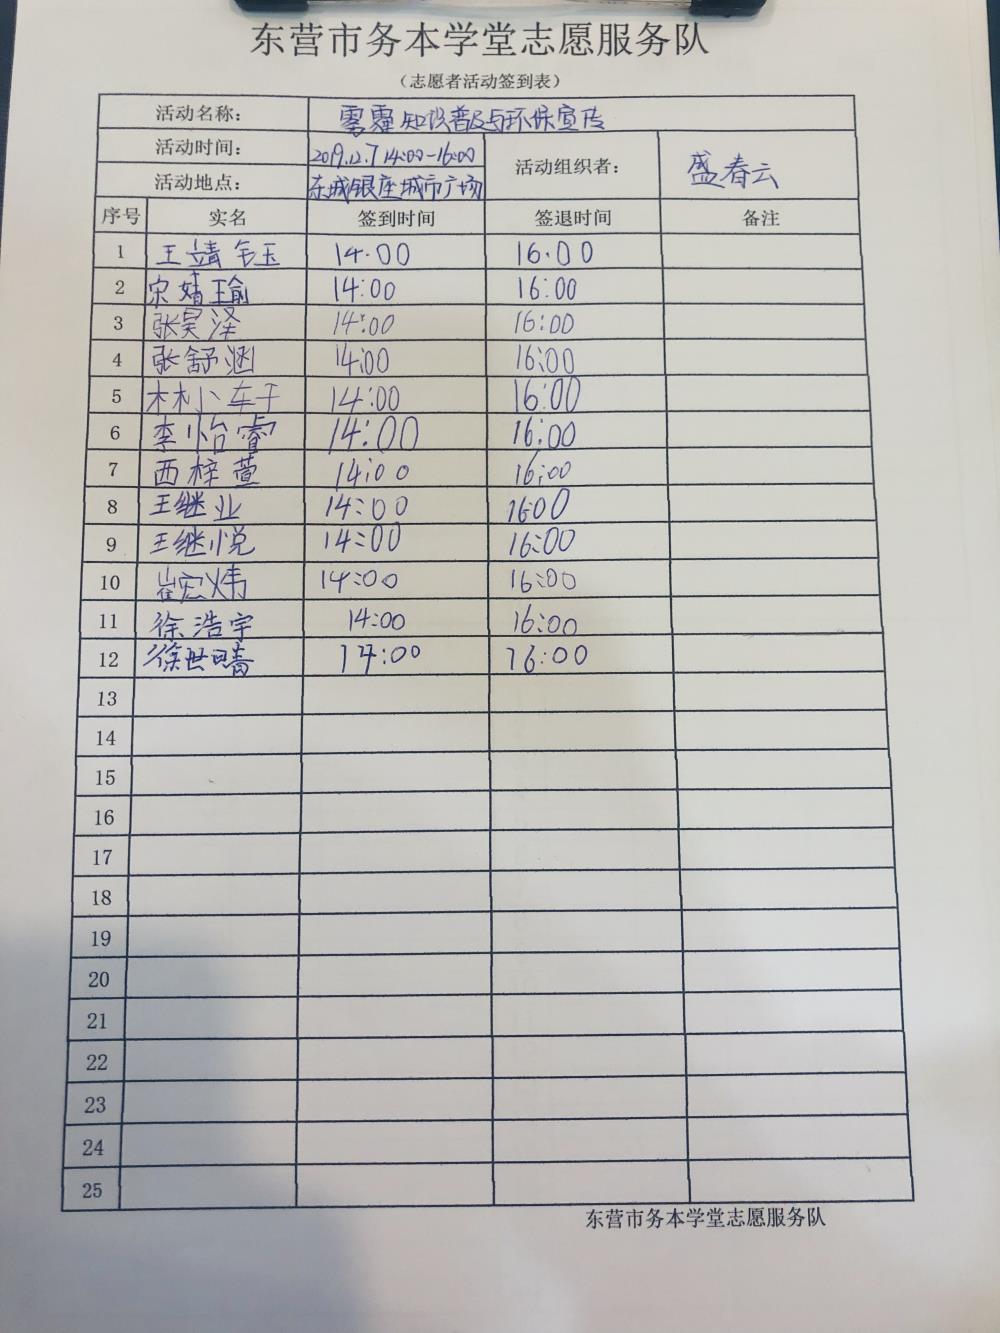 东营市务本学堂志愿服务队
（志愿者活动签到表）
活动名称： 雾霾知识普及与环保宣传
活动时间： 2019.12.7 14:00-16:00 活动组织者： 盛春云
活动地点： 东城银座城市广场
序号 实名 签到时间 签退时间 备注
1 王靖钰 14.00 16.00
2 宋婧瑜 14:00 16:00
3 张昊泽 14:00 16:00
4 张舒涵 14:00 16:00
5 林小轩 14:00 16:00
6 李怡睿 14:00 16:00
7 西梓萱 14:00 16:00
8 王继业 14:00 1600
9 王继悦 14:00 16:00
10 崔宏炜 14:00 16:00
11 徐浩宇 14:00 16:00
12 徐世晴 14:00 16:00
13
14
15
16
17
18
19
20
21
22
23
24
25
东营市务本学堂志愿服务队